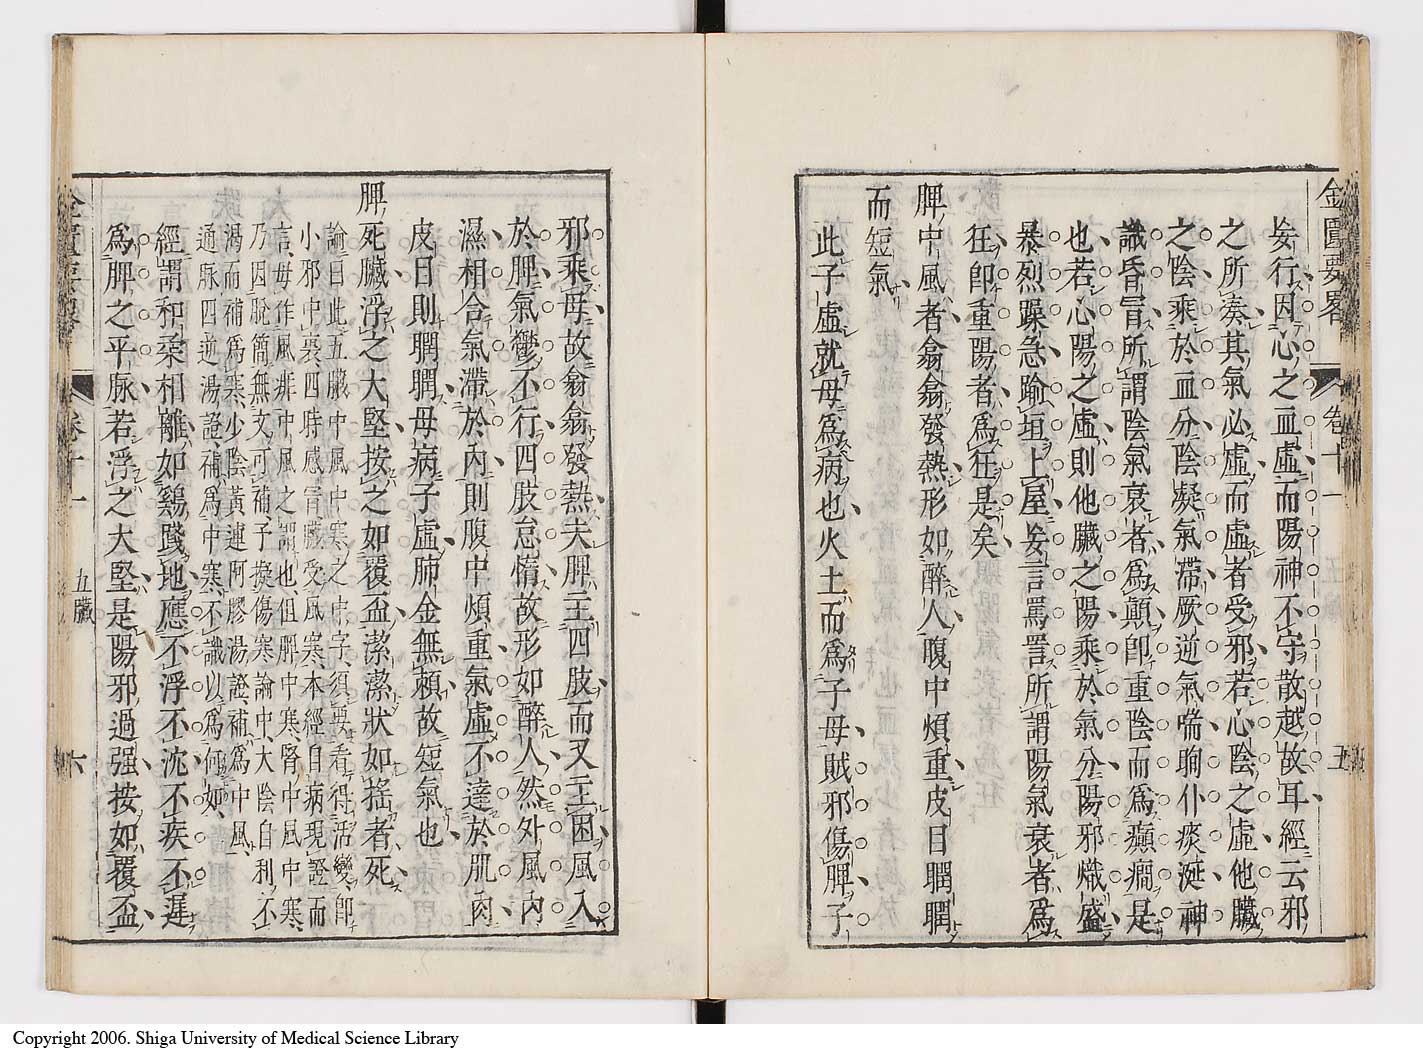 金匱要畧　卷十一　五
妄行因心之血虛而陽神不守散越故耳經云邪
之所湊其氣必虛而虛者受邪若心陰之虛他臟
之陰乘於血分陰凝氣滯厥逆氣喘眴仆痰涎神
識昏冒所謂陰氣衰者爲顚卽重陰而爲癲癇是
也若心陽之虛則他臟之陽乘於氣分陽邪熾盛
暴烈躁急踰垣上屋妄言罵詈所謂陽氣衰者爲
狂卽重陽者爲狂是矣
脾中風者翕翕發熱形如醉人腹中煩重皮目瞤瞤
而短氣
此子虛就母爲病也火土而爲子母賊邪傷脾子
邪乘母故翕翕發熱夫脾主四肢而又主困風入
於脾氣鬱不行四肢怠惰故形如醉人然外風內
濕相合氣滯於內則腹中煩重氣虛不達於肌肉
皮目則瞤瞤母病子虛肺金無賴故短氣也
脾死臟浮之大堅按之如覆盃潔潔狀如搖者死
論曰此五臟中風中寒之中字須要看得活變卽
小邪中裏四時感冒臟受風寒本經自病現證而
言毋作風痱中風之謂也但脾中寒腎中風中寒
乃因脫簡無文可補予擬傷寒論中大陰自利不
渴而補爲寒少陰黃連阿膠湯證補爲中風
通脉四逆湯證補爲中寒不識以爲何如
經謂和柔相離如雞踐地應不浮不沈不疾不遲
爲脾之平脉若浮之大堅是陽邪過强按如覆盃
卷十一　五臟　六
Copyright 2006. Shiga University of Medical Science Library